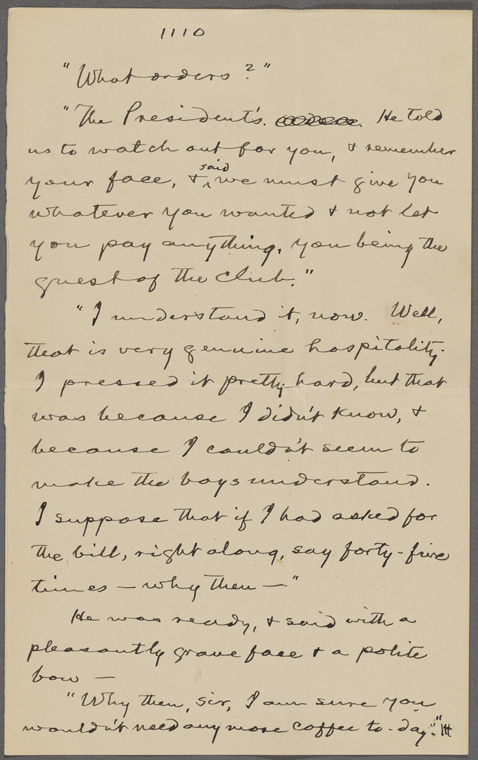 1110
"What orders?"
"The President's. He told
us to watch out for you, & remember
your face, & said we must give you
whatever you wanted & not let
you pay anything, you being the
guest of the Club."
"I understand it, now. Well,
that is very genuine hospitality.
I pressed it pretty hard, but that
was because I didn't know, &
because I couldn't seem to
make the boys understand.
I suppose that if I had asked for
the bill, right along, say forty-five
times — why then — "
He was ready, & said with a
pleasantly grave face & a polite
bow —
"Why then, sir, I am sure you
wouldn't need any more coffee to-day."